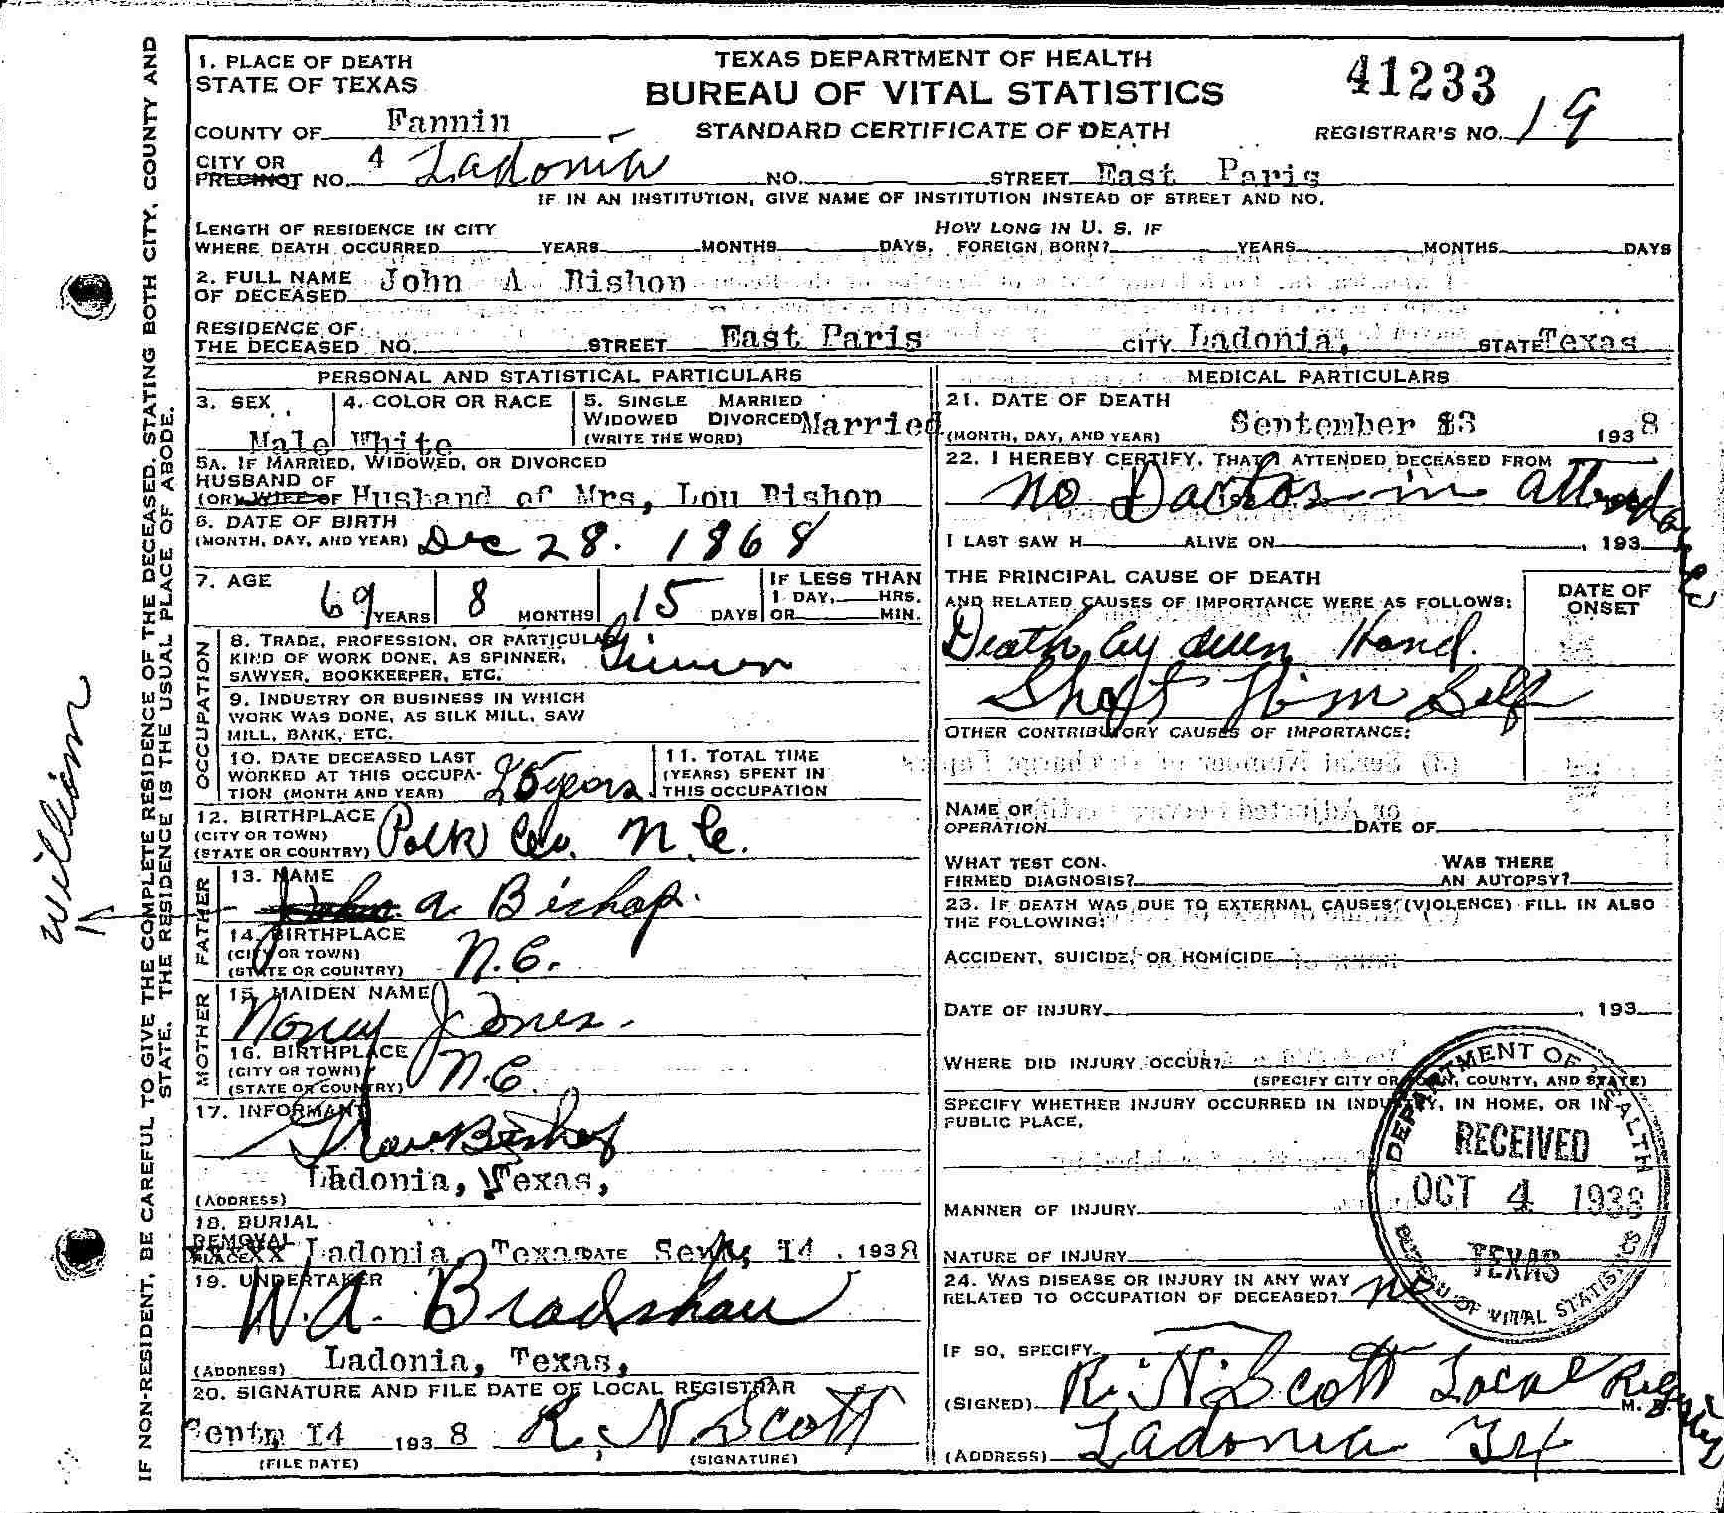 1. PLACE OF DEATH
STATE OF TEXAS
TEXAS DEPARTMENT OF HEALTH
BUREAU OF VITAL STATISTICS
STANDARD CERTIFICATE OF DEATH
41233
REGISTRAR'S NO. 19
COUNTY OF Fannin
CITY OR PRECINCT NO. 4 Ladonia NO. STREET East Paris
IF IN AN INSTITUTION, GIVE NAME OF INSTITUTION INSTEAD OF STREET AND NO.
LENGTH OF RESIDENCE IN CITY WHERE DEATH OCCURRED YEARS MONTHS DAYS.
HOW LONG IN U. S. IF FOREIGN BORN? YEARS MONTHS DAYS
2. FULL NAME OF DECEASED John A Bishop
RESIDENCE OF THE DECEASED NO. STREET East Paris CITY Ladonia, STATE Texas
PERSONAL AND STATISTICAL PARTICULARS
3. SEX Male
4. COLOR OR RACE White
5. SINGLE MARRIED WIDOWED DIVORCED (WRITE THE WORD) Married
5A. IF MARRIED, WIDOWED, OR DIVORCED
HUSBAND OF
(OR) WIFE OF Husband of Mrs, Lou Bishop
6. DATE OF BIRTH
(MONTH, DAY, AND YEAR) Dec 28. 1868
7. AGE 69 YEARS 8 MONTHS 15 DAYS IF LESS THAN 1 DAY, HRS. OR MIN.
OCCUPATION
8. TRADE, PROFESSION, OR PARTICULAR
KIND OF WORK DONE, AS SPINNER,
SAWYER, BOOKKEEPER, ETC. Ginner
9. INDUSTRY OR BUSINESS IN WHICH
WORK WAS DONE, AS SILK MILL, SAW
MILL, BANK, ETC.
10. DATE DECEASED LAST
WORKED AT THIS OCCUPA-
TION (MONTH AND YEAR) 25 years
11. TOTAL TIME
(YEARS) SPENT IN
THIS OCCUPATION
12. BIRTHPLACE
(CITY OR TOWN)
(STATE OR COUNTRY) Polk Co. N.C.
FATHER
13. NAME John A Bishop.
William
14. BIRTHPLACE
(CITY OR TOWN)
(STATE OR COUNTRY) N.C.
MOTHER
15. MAIDEN NAME
Nancy Jones.
16. BIRTHPLACE
(CITY OR TOWN)
(STATE OR COUNTRY) N.C.
17. INFORMANT
Bishop
(ADDRESS) Ladonia, Texas,
18. BURIAL
REMOVAL
PLACE Ladonia, Texas DATE Sept, 14, 1938
19. UNDERTAKER
W.A. Bradshaw
(ADDRESS) Ladonia, Texas,
20. SIGNATURE AND FILE DATE OF LOCAL REGISTRAR
Sept, 14 1938 R. N Scott
(FILE DATE) (SIGNATURE)
MEDICAL PARTICULARS
21. DATE OF DEATH
(MONTH, DAY, AND YEAR) September 13 1938
22. I HEREBY CERTIFY, THAT I ATTENDED DECEASED FROM
no Doctor in attendance
I LAST SAW H ALIVE ON , 193
THE PRINCIPAL CAUSE OF DEATH
AND RELATED CAUSES OF IMPORTANCE WERE AS FOLLOWS:
DATE OF ONSET
Death by own Hand.
Shot Him Self
OTHER CONTRIBUTORY CAUSES OF IMPORTANCE:
NAME OF
OPERATION DATE OF
WHAT TEST CON-
FIRMED DIAGNOSIS?
WAS THERE
AN AUTOPSY?
23. IF DEATH WAS DUE TO EXTERNAL CAUSES (VIOLENCE) FILL IN ALSO
THE FOLLOWING:
ACCIDENT, SUICIDE, OR HOMICIDE
DATE OF INJURY , 193
WHERE DID INJURY OCCUR?
(SPECIFY CITY OR TOWN, COUNTY, AND STATE)
SPECIFY WHETHER INJURY OCCURRED IN INDUSTRY, IN HOME, OR IN
PUBLIC PLACE.
MANNER OF INJURY
NATURE OF INJURY
24. WAS DISEASE OR INJURY IN ANY WAY
RELATED TO OCCUPATION OF DECEASED? no
IF SO, SPECIFY
(SIGNED) R. N. Scott Local Registrar M. D.
(ADDRESS) Ladonia Tex
DEPARTMENT OF HEALTH
RECEIVED
OCT 4 1938
TEXAS
BUREAU OF VITAL STATISTICS
IF NON-RESIDENT, BE CAREFUL TO GIVE THE COMPLETE RESIDENCE OF THE DECEASED, STATING BOTH CITY, COUNTY AND
STATE. THE RESIDENCE IS THE USUAL PLACE OF ABODE.